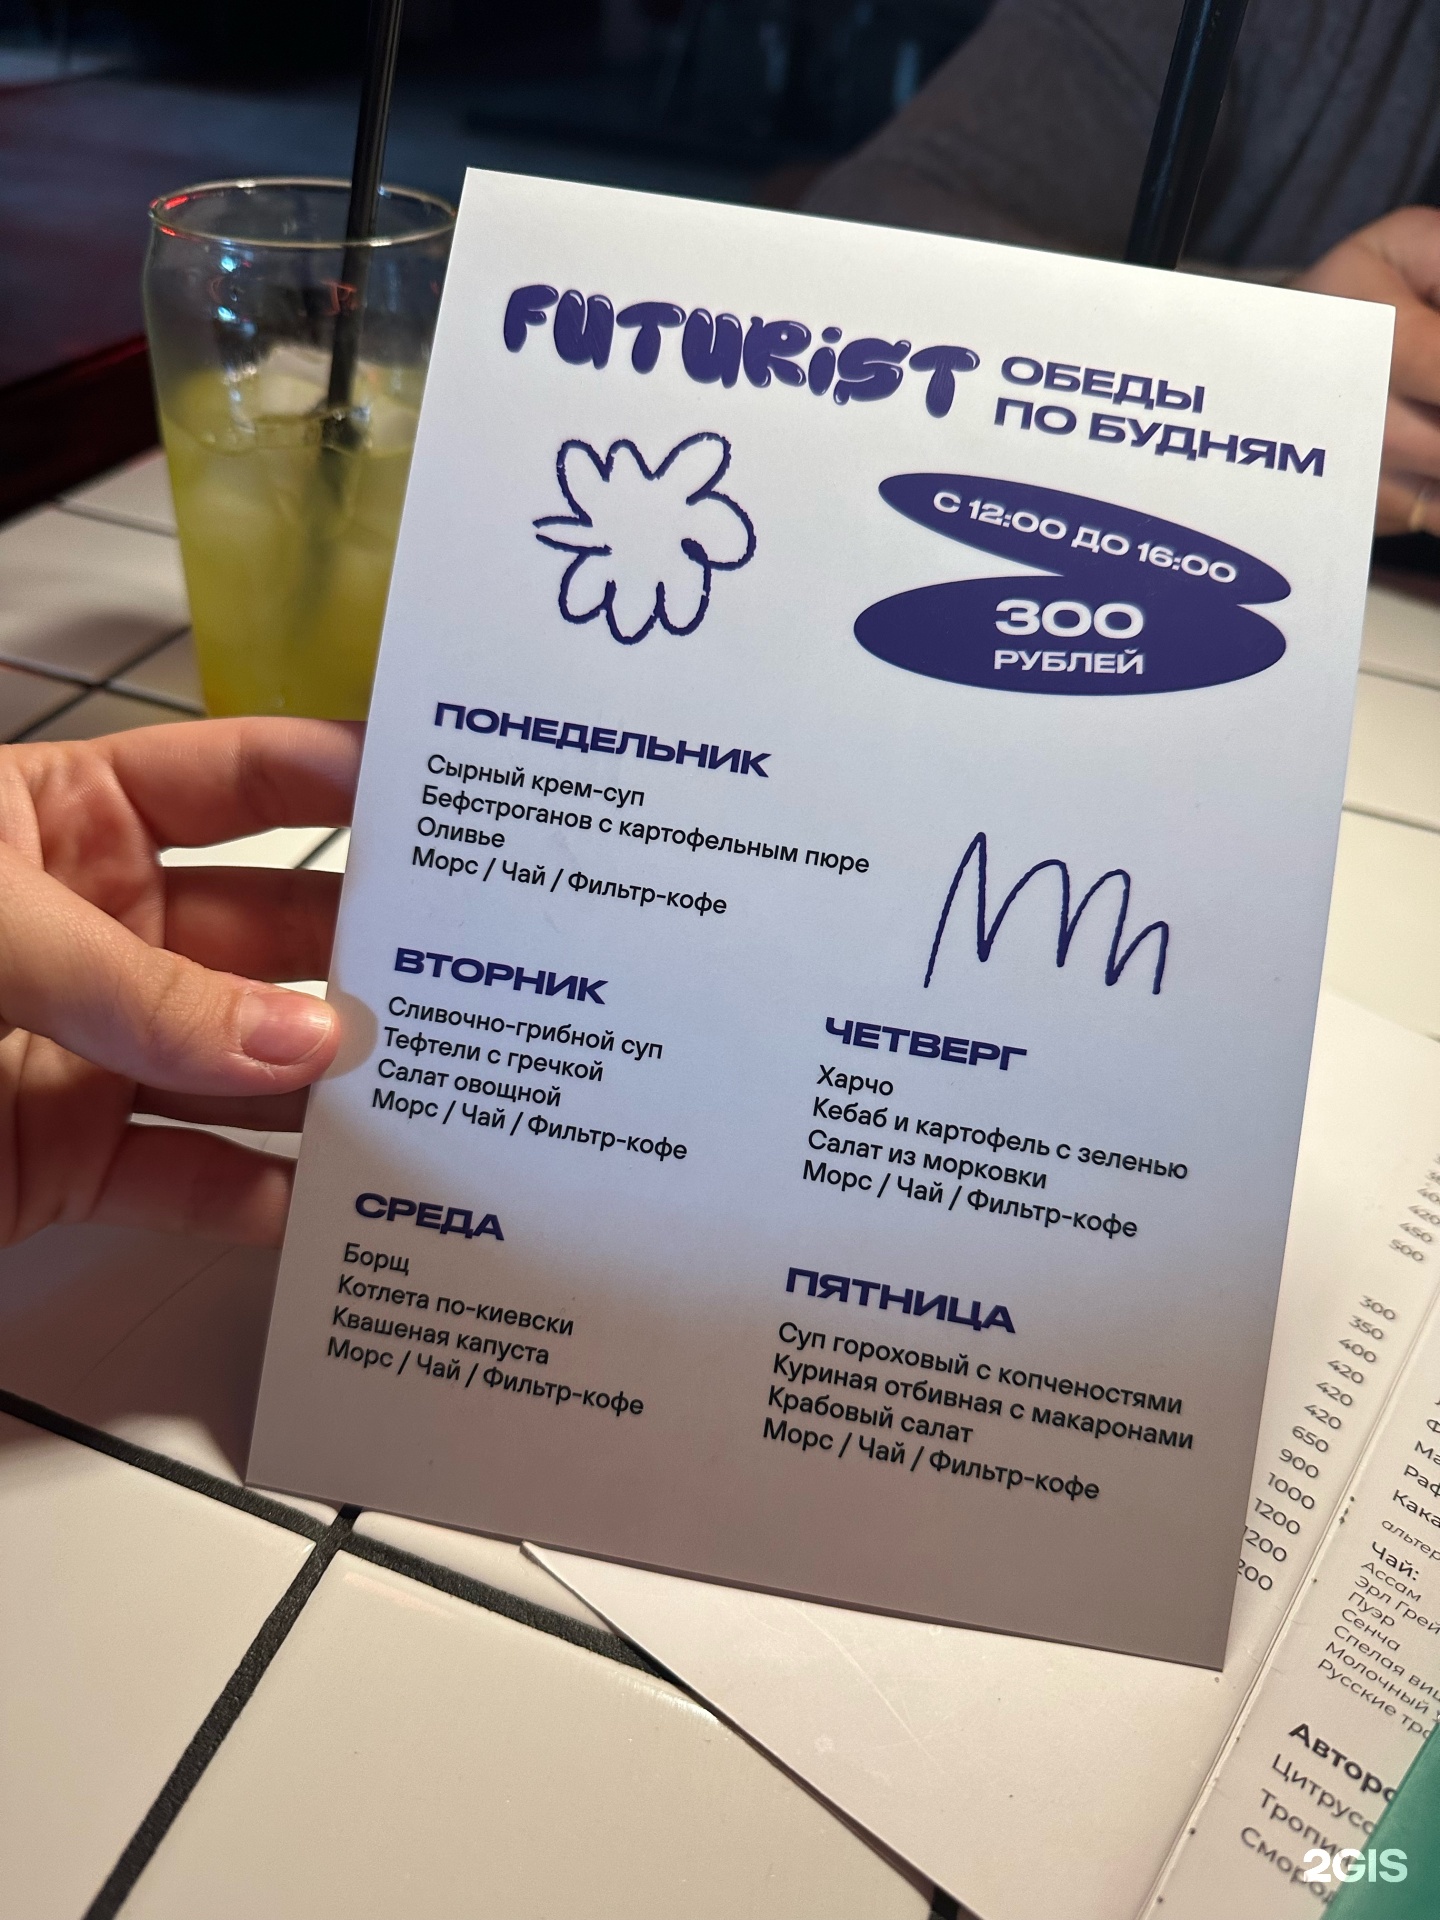 FUTURiST
ОБЕДЫ
ПО БУДНЯМ
С 12:00 ДО 16:00
300
РУБЛЕЙ
ПОНЕДЕЛЬНИК
Сырный крем-суп
Бефстроганов с картофельным пюре
Оливье
Морс / Чай / Фильтр-кофе
ВТОРНИК
Сливочно-грибной суп
Тефтели с гречкой
Салат овощной
Морс / Чай / Фильтр-кофе
СРЕДА
Борщ
Котлета по-киевски
Квашеная капуста
Морс / Чай / Фильтр-кофе
ЧЕТВЕРГ
Харчо
Кебаб и картофель с зеленью
Салат из морковки
Морс / Чай / Фильтр-кофе
ПЯТНИЦА
Суп гороховый с копченостями
Куриная отбивная с макаронами
Крабовый салат
Морс / Чай / Фильтр-кофе
420
450
500
300
350
400
420
420
420
650
900
1000
1200
Чай:
Ассам
Эрл Грей
Пуэр
Сенча
Спелая
Молочный
Русские
2GIS